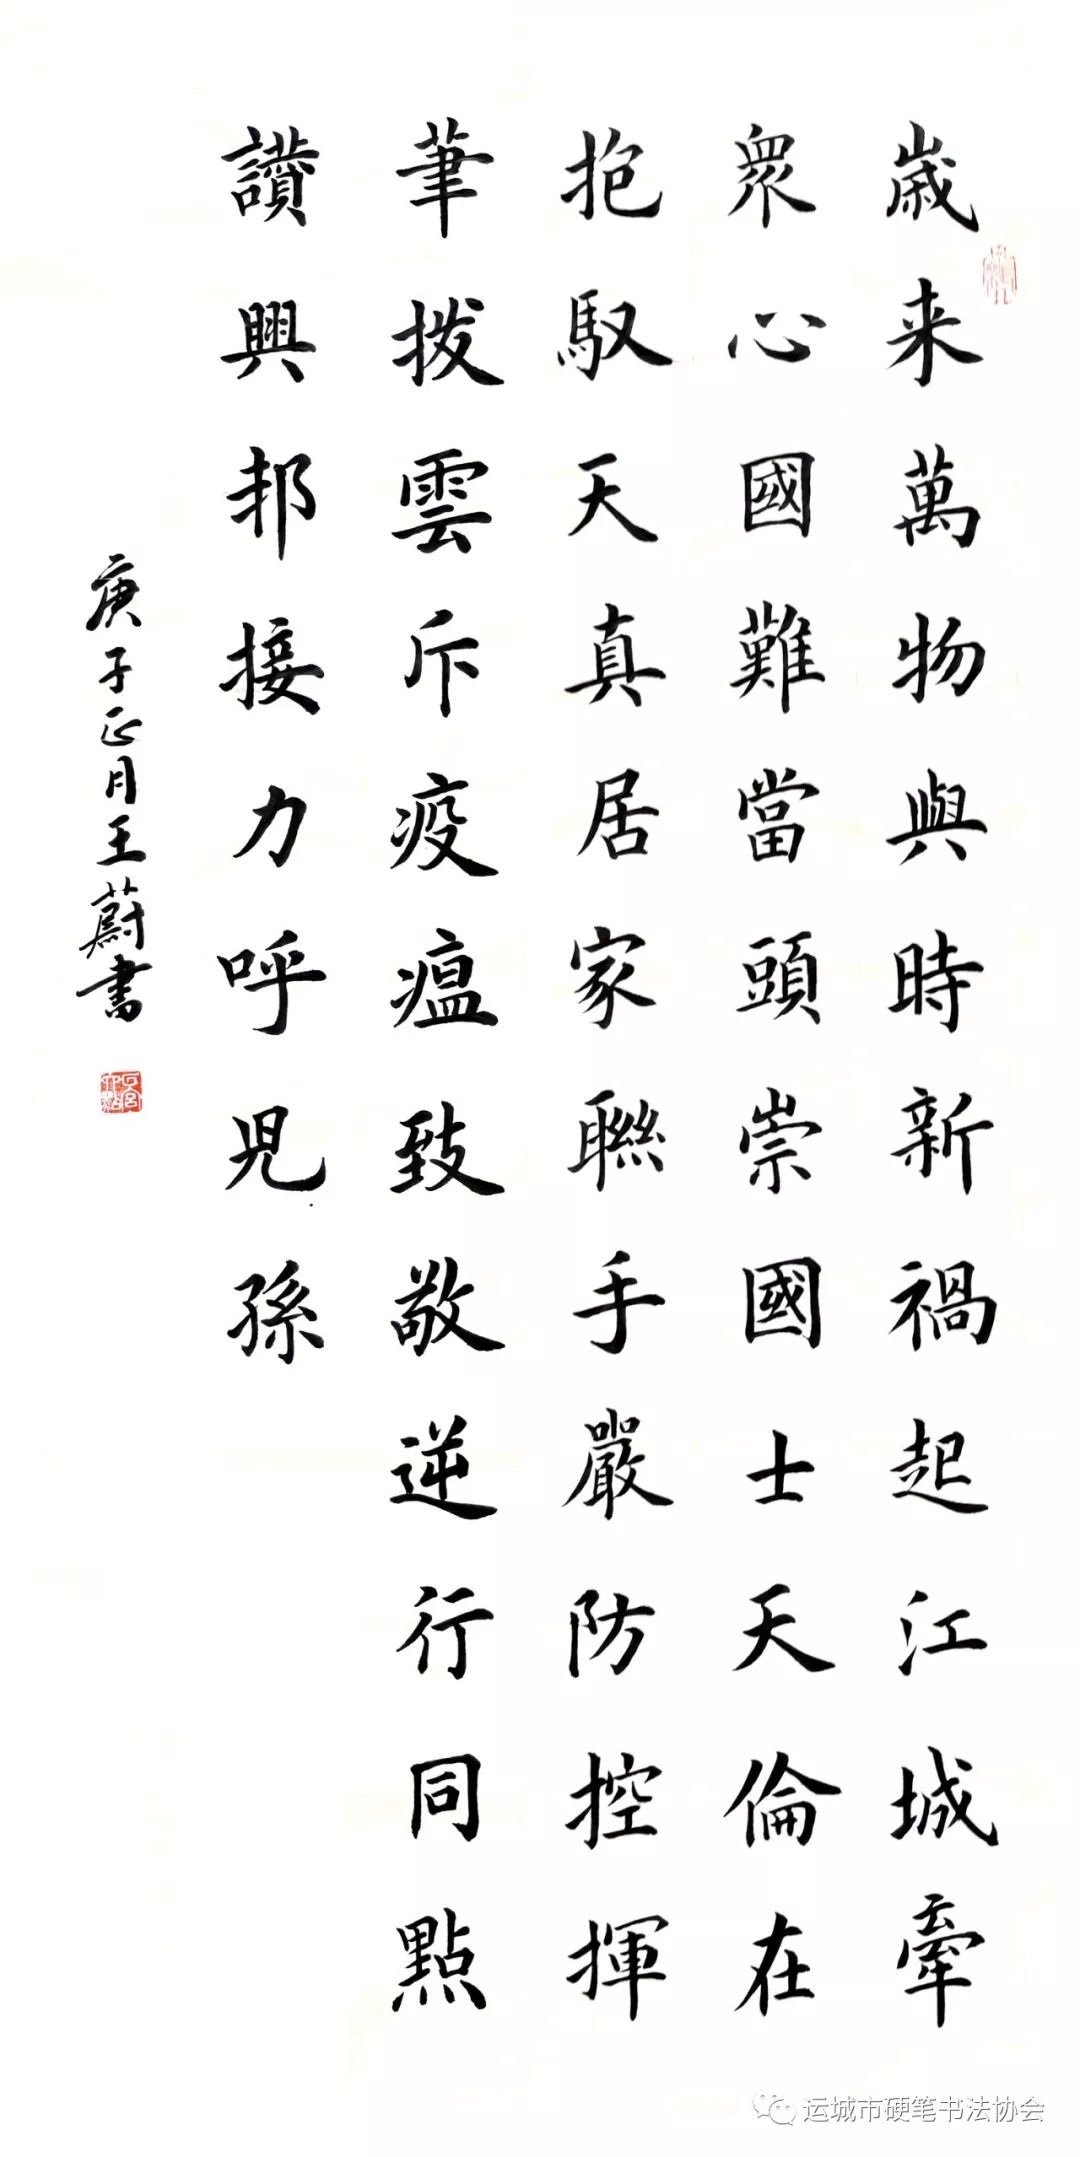 歲来萬物與時新禍起江城牽
眾心國難當頭崇國士天倫在
抱馭天真居家聯手嚴防控揮
筆拨雲斥疫瘟致敬逆行同點
讃興邦接力呼児孫
庚子正月王蔚書
运城市硬笔书法协会